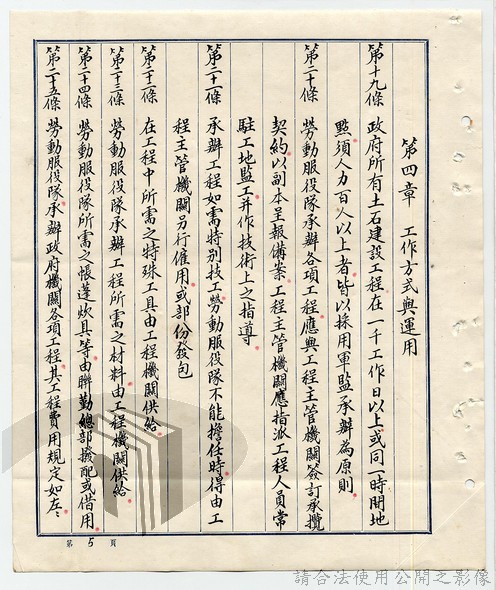 第四章　工作方式與運用
第十九條　政府所有土石建設工程在一千工作日以上或同一時間地
點須人力百人以上者皆以採用軍監承辦為原則
第二十條　勞動服役隊承辦各項工程應與工程主管機關簽訂承攬
契約以副本呈報備案工程主管機關應指派工程人員常
駐工地監工并作技術上之指導
第二十一條　承辦工程如需特別技工勞動服役隊不能擔任時得由工
程主管機關另行僱用或部份發包
第二十二條　在工程中所需之特殊工具由工程機關供給
第二十三條　勞動服役隊承辦工程所需之材料由工程機關供給
第二十四條　勞動服役隊所需之帳蓬炊具等由聯勤總部撥配或借用
第二十五條　勞動服役隊承辦政府機關各項工程其工程費用規定如左：
第5頁
請合法使用公開之影像